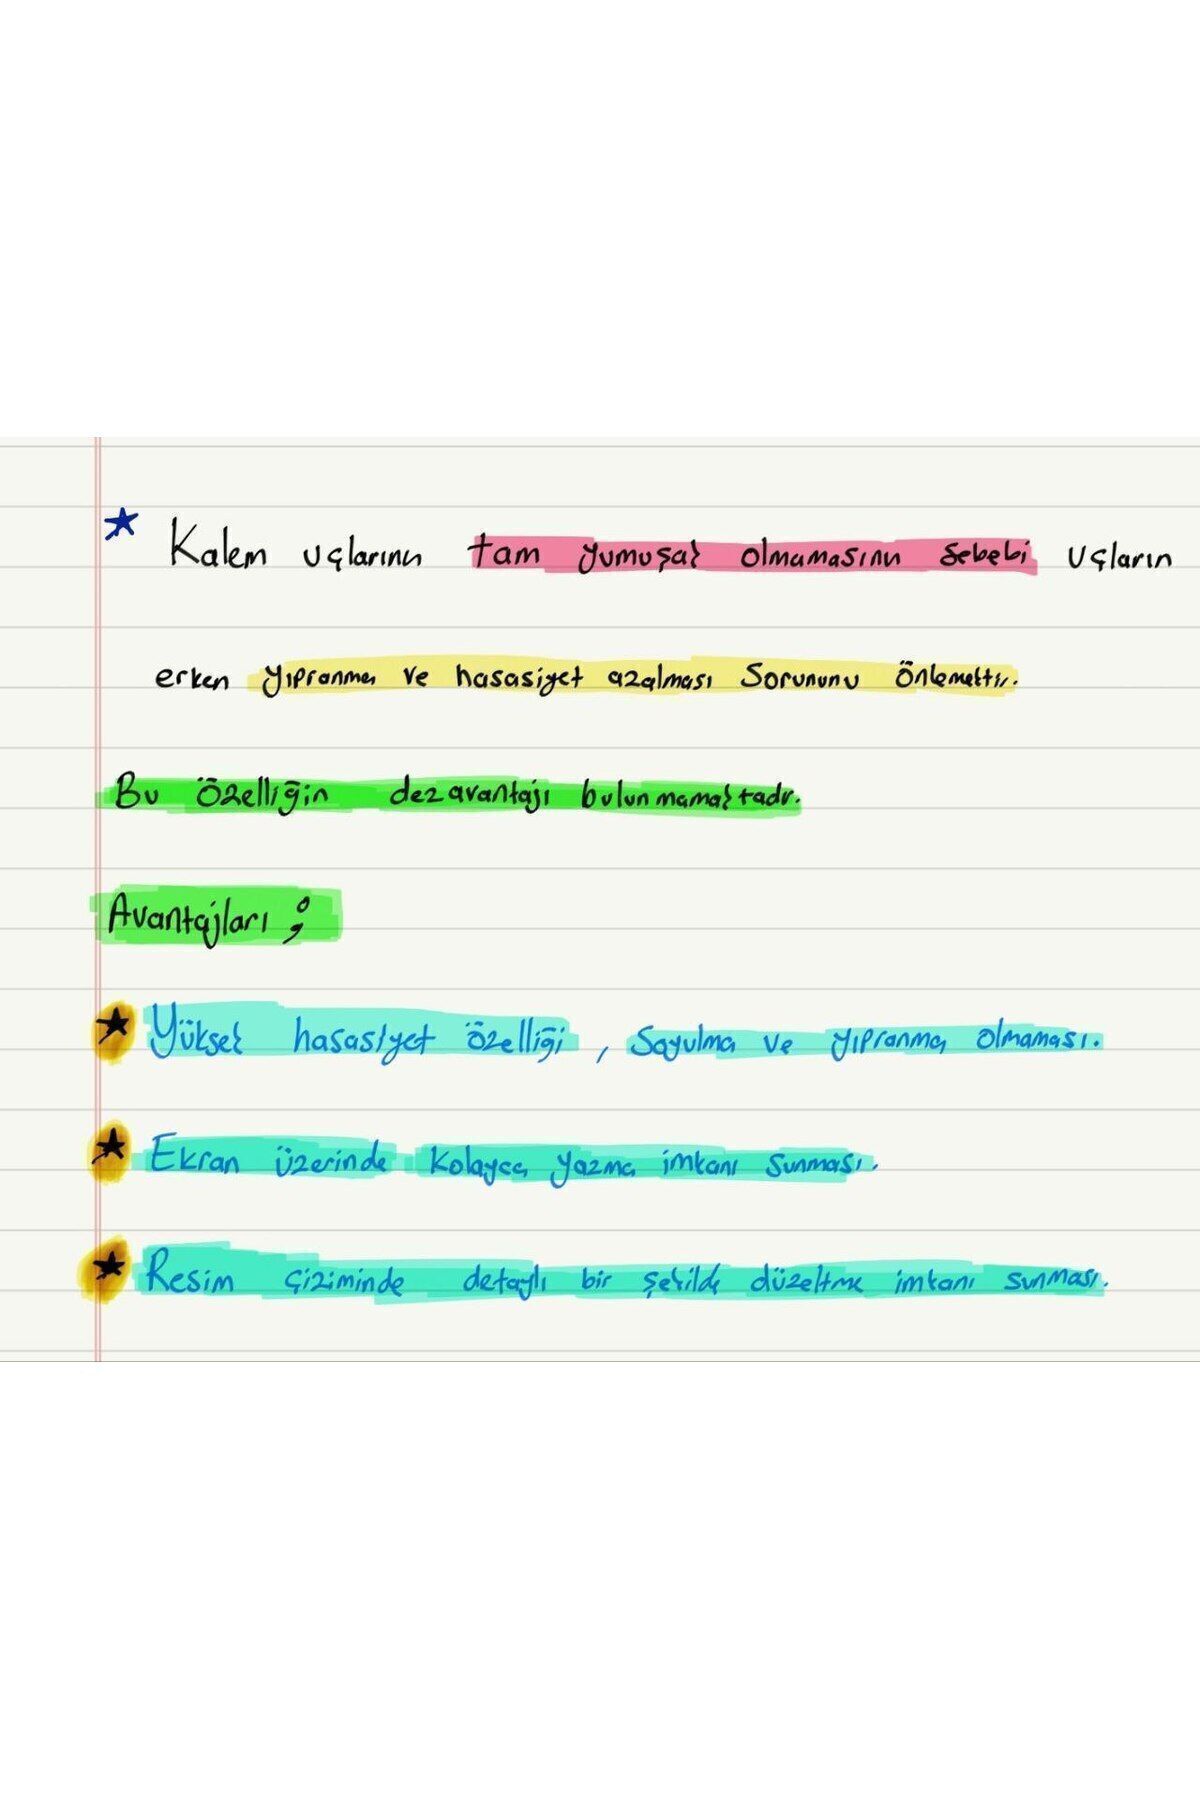 ★ Kalem uçlarının tam yumuşak olmamasının sebebi uçların
erken yıpranma ve hasasiyet azalması sorununu önlemektir.
Bu özelliğin dezavantajı bulunmamaktadır.
Avantajları ;
★ Yüksek hasasiyet özelliği, Soyulma ve yıpranma olmaması.
★ Ekran üzerinde kolayca yazma imkanı sunması.
★ Resim çiziminde detaylı bir şekilde düzeltme imkanı sunması.